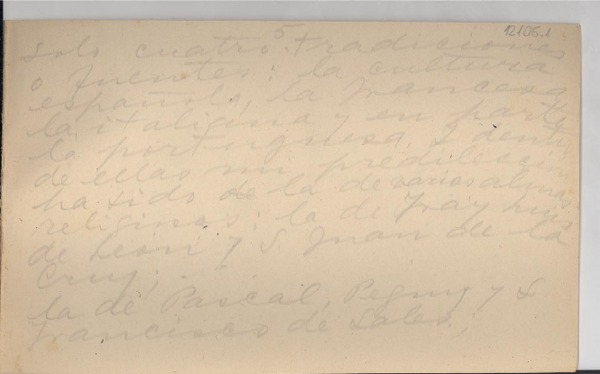 12106.1
5
solo cuatro tradiciones
o fuentes: la cultura
española, la francesa
la italiana y en parte
la portuguesa. Y dentro
de ellas mi predilección
ha sido de la de varias almas
religiosas: la de Fray Luis
de León y S. Juan de la
Cruz;
la de Pascal, Peguy y S
Francisco de Sales,